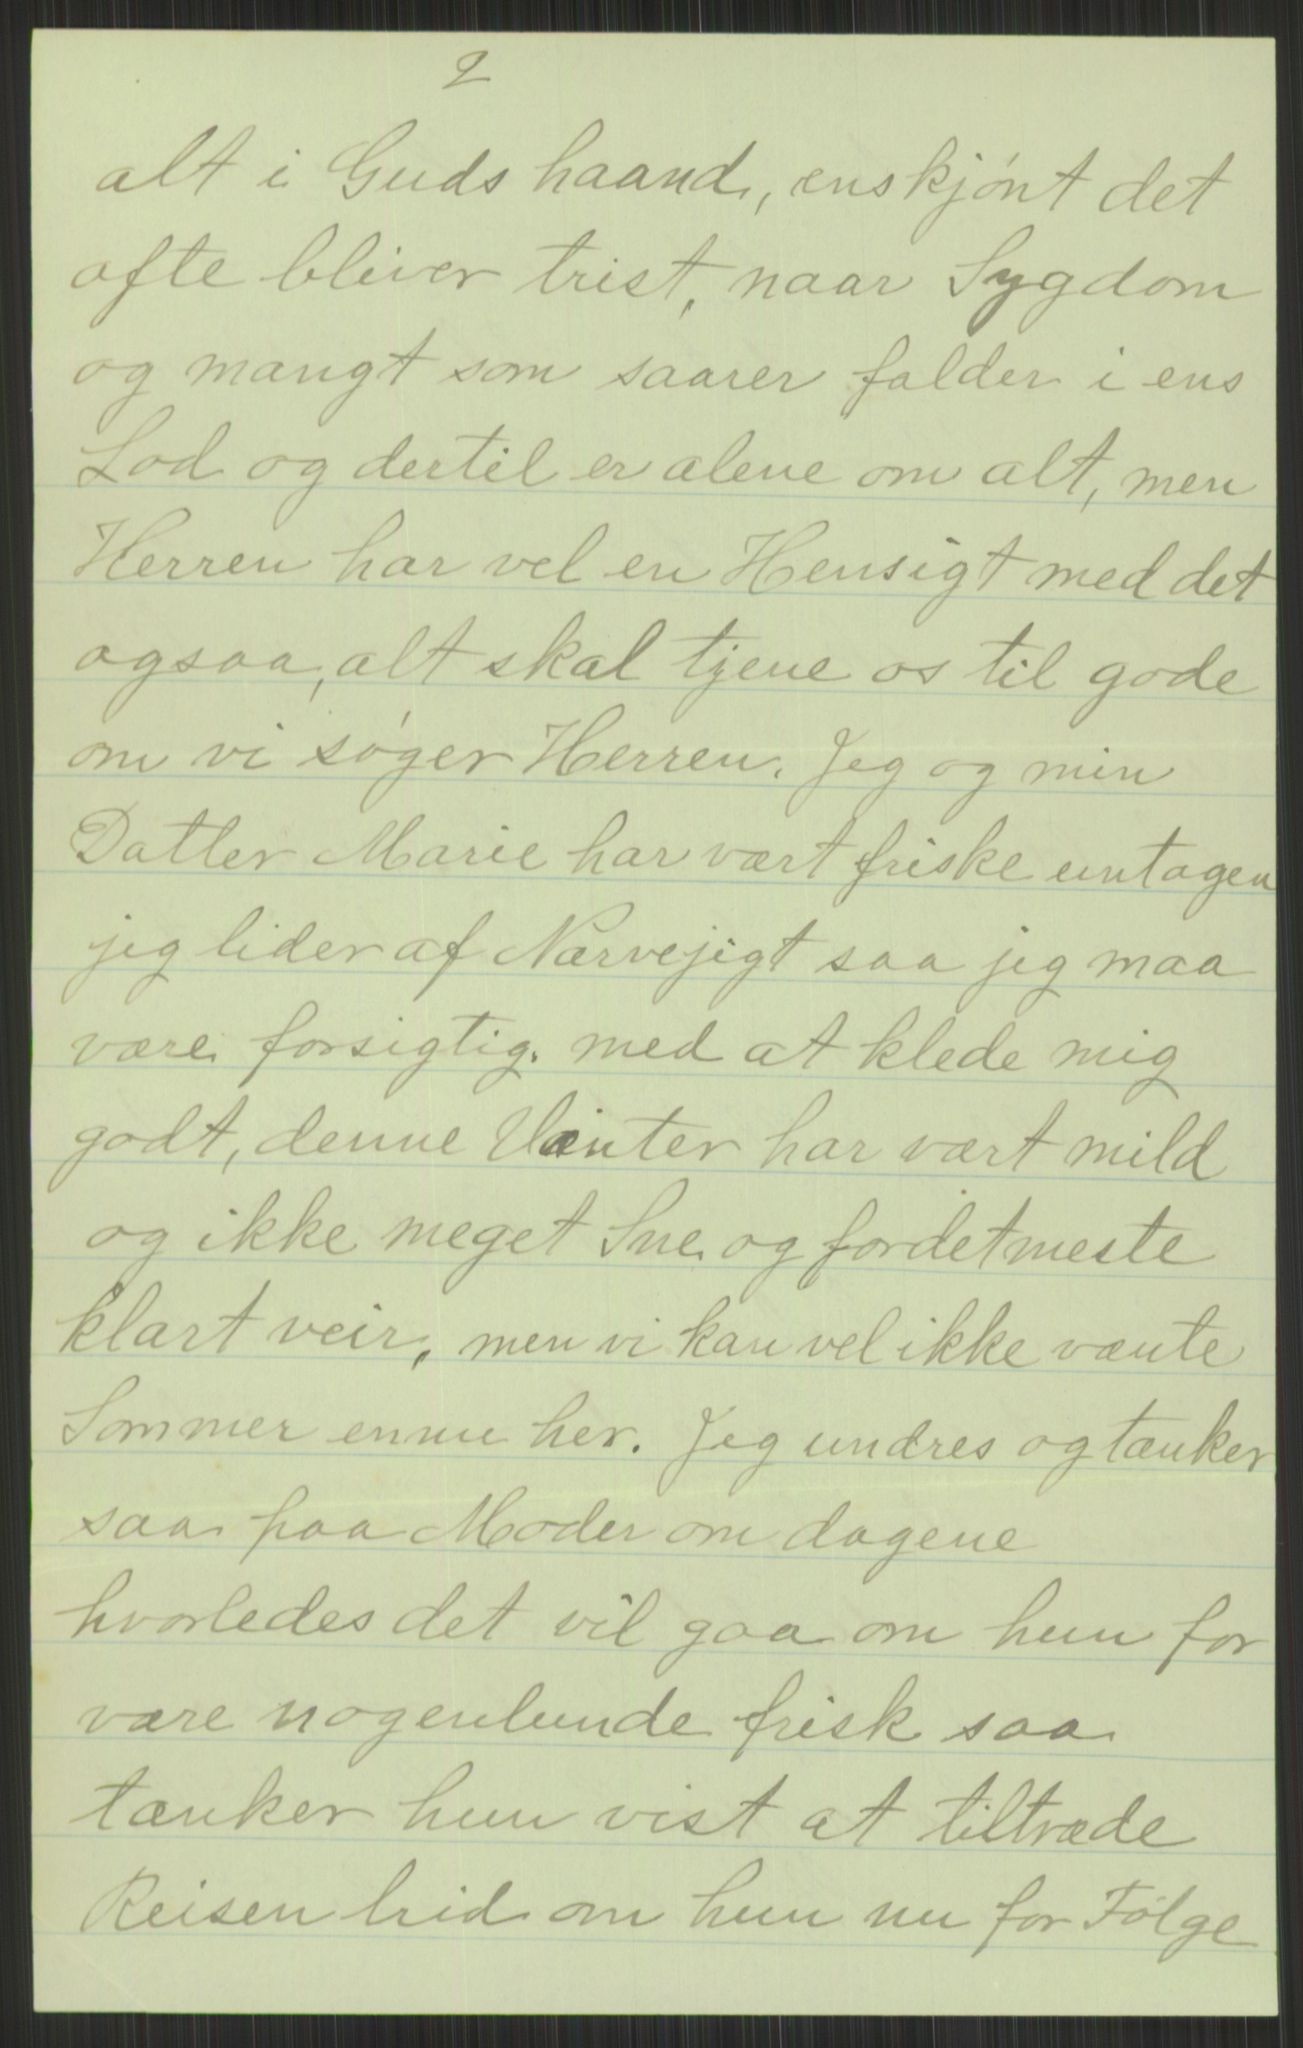 2
alt i Guds haand, enskjönt det
ofte bliver trist, naar Sygdom
og mangt som saarer falder i ens
Lod og dertil er alene om alt, men
Herren har vel en Hensigt med det
ogsaa, alt skal tjene os til gode
om vi söger Herren. Jeg og min
Datter Marie har vært friske untagen
jeg lider af Nærvejigt saa jeg maa
være forsigtig. med at klede mig
godt, denne Vinter har vært mild
og ikke meget Sne og fordetmeste
klart veir, men vi kan vel ikke vænte
Sommer ennu her. Jeg undres og tænker
saa paa Moder om dagene
hvorledes det vil gaa om hun for
være nogenlunde frisk saa
tænker hun vist at tiltræde
Reisen hid om hun nu for Fölge